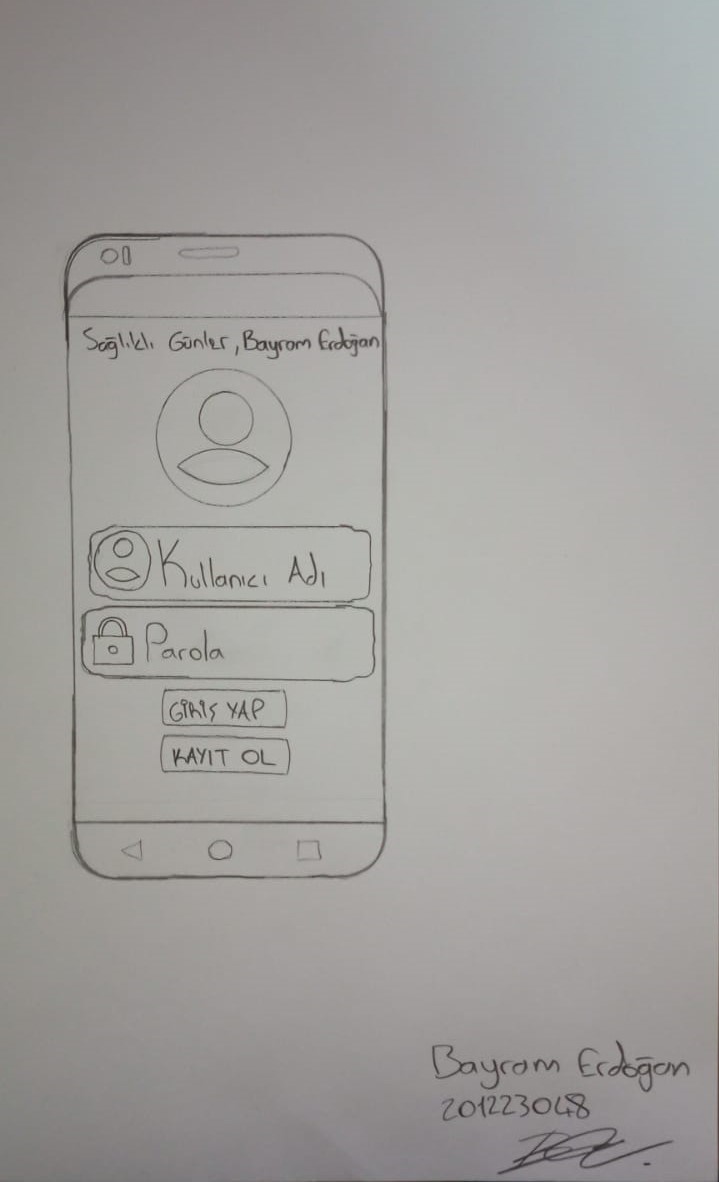 Sağlıklı Günler, Bayram Erdoğan
Kullanıcı Adı
Parola
GİRİŞ YAP
KAYIT OL
Bayram Erdoğan
201223048